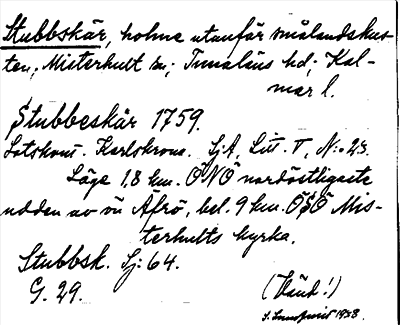 Stubbskär, holme utanför smålandskus-
ten, Misterhult sn; Tunaläns hd; Kal-
mar l.
Stubbeskär 1759.
Lotskont. Karlskrona. SjA, Litt. T, N:o 23.
Läge 1,8 km. ONO nordöstligaste
udden av ön Äfrö, bel. 9 km. OSO Mis-
terhults kyrka.
Stubbsk. Sj: 64.
G. 29.
(Vänd!)
1938.